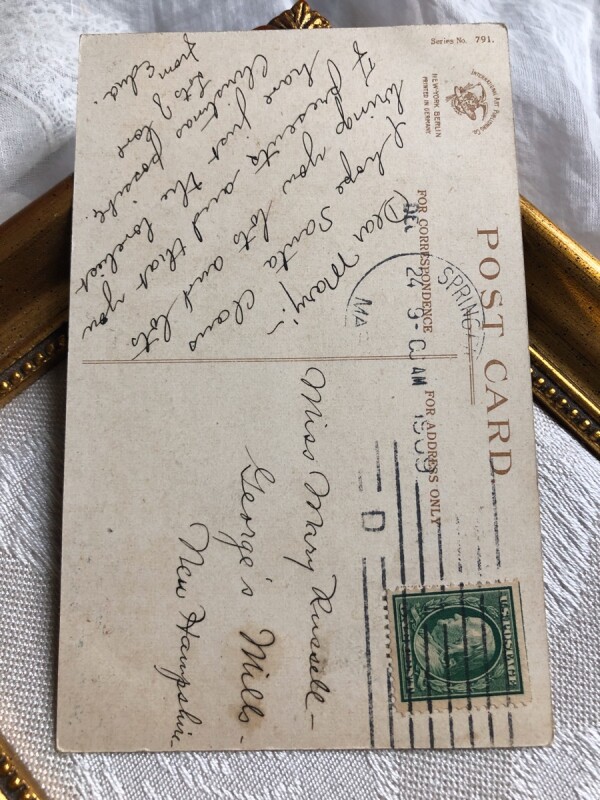 Series No. 791.
INTERNATIONAL ART PUBLISHING CO.
NEW YORK BERLIN
PRINTED IN GERMANY
POST CARD
FOR CORRESPONDENCE
FOR ADDRESS ONLY
SPRINGF
MA
DEC 24
AM
1909
D
U.S. POSTAGE
Dear Mary:-
I hope Santa Claus
bring you lots and lots
presents and that you
have just the loveliest
Christmas possible.
Lots love
from Edna.
Miss Mary Russell-
George's Mills-
New Hampshire-